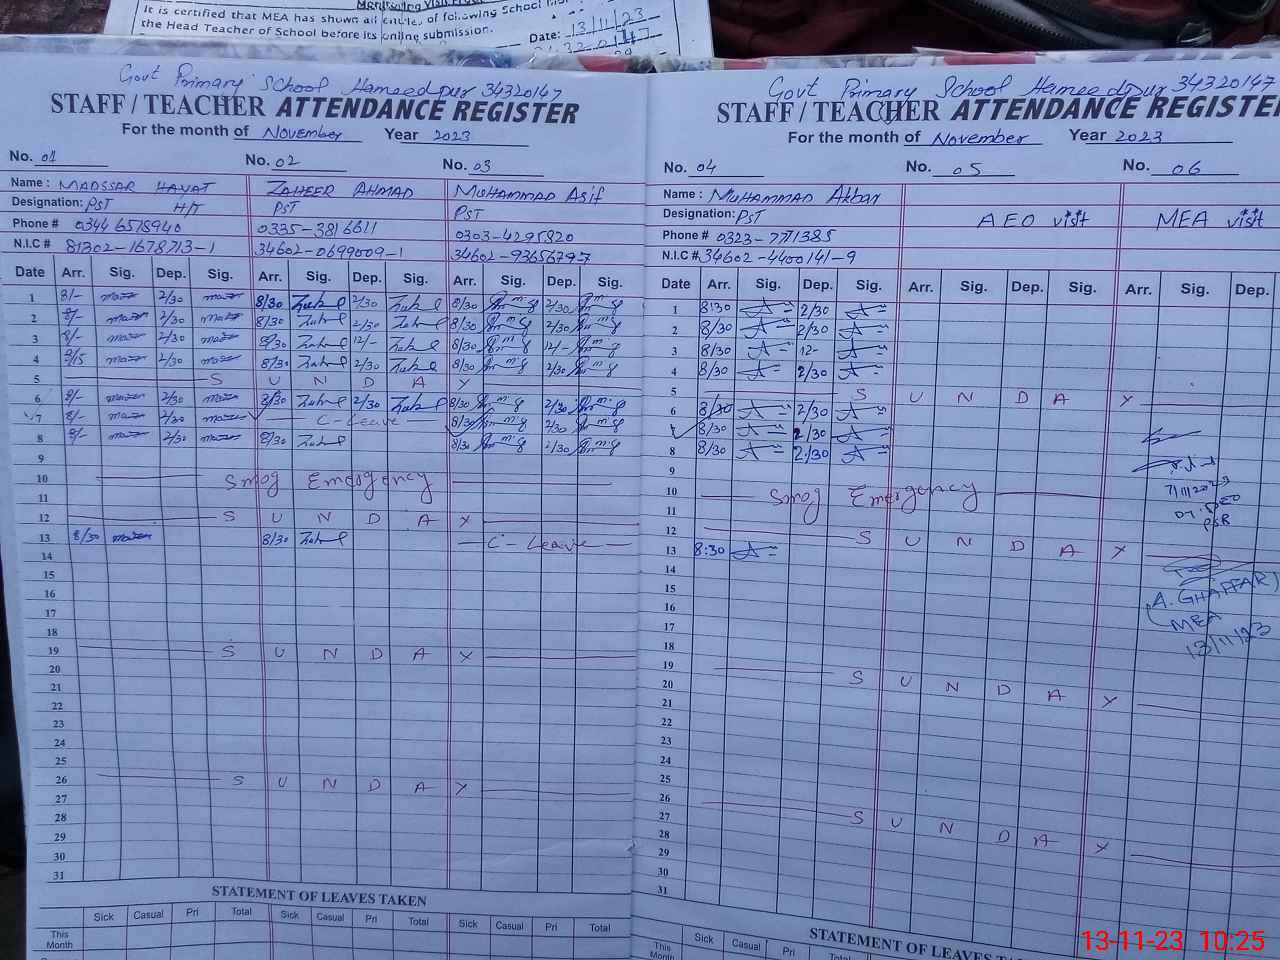 Monitoring Visit
It is certified that MEA has shown all entries of following School
the Head Teacher of School before its online submission.
Date: 13/11/23
Govt Primary School Hameedpur 34320147
STAFF / TEACHER ATTENDANCE REGISTER
For the month of November Year 2023
No. 01 No. 02 No. 03
Name: MADSSAR HAYAT ZAHEER AHMAD MUHAMMAD Asif
Designation: PST H/T PST PST
Phone # 0344 6578940 0335-3816611 0303-4295820
N.I.C # 81302-1678713-1 34602-0699009-1 34602-9365679-7
Date Arr. Sig. Dep. Sig. Arr. Sig. Dep. Sig. Arr. Sig. Dep. Sig.
1 8/- 2/30 8/30 2/30 8/30 2/30
2 8/- 2/30 8/30 2/30 8/30 2/30
3 8/- 2/30 8/30 12/- 8/30 12/-
4 8/15 2/30 8/30 2/30 8/30 2/30
5 S U N D A Y
6 8/- 2/30 8/30 2/30 8/30 2/30
7 8/- 2/30 C-Leave 8/30 2/30
8 8/- 2/30 8/30 8/30 2/30
9
10 Smog Emergency
11
12 S U N D A Y
13 8/30 8/30 C-Leave
14
15
16
17
18
19 S U N D A Y
20
21
22
23
24
25
26 S U N D A Y
27
28
29
30
31
STATEMENT OF LEAVES TAKEN
Sick Casual Pri Total Sick Casual Pri Total Sick Casual Pri Total
This Month
Govt Primary School Hameedpur 34320147
STAFF / TEACHER ATTENDANCE REGISTER
For the month of November Year 2023
No. 04 No. 05 No. 06
Name: Muhammad Akbar
Designation: PST AEO visit MEA visit
Phone # 0323-7771385
N.I.C # 34602-4400141-9
Date Arr. Sig. Dep. Sig. Arr. Sig. Dep. Sig. Arr. Sig. Dep.
1 8:30 2/30
2 8/30 2/30
3 8/30 12-
4 8/30 2/30
5 S U N D A Y
6 8/30 2/30
7 8/30 2/30
8 8/30 2/30
9
10 Smog Emergency
7/11/2023
11
12 S U N D A Y
13 8:30
14
15
A. GHAFFAR
16
MEA
17
13/11/23
18
19 S U N D A Y
20
21
22
23
24
25
26 S U N D A Y
27
28
29
30
31
STATEMENT OF LEAVES TA
Sick Casual Pri Total
This
13-11-23 10:25